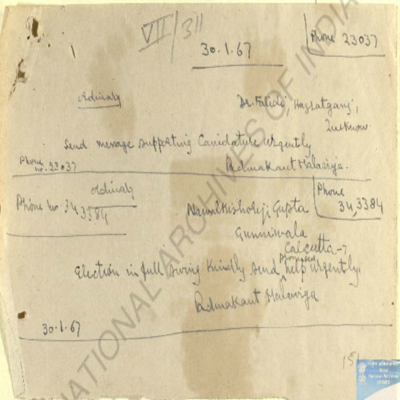 VII/311
30.1.67
Phone 23037
ordinary
Dr. Faridi, Hazratganj,
Lucknow
Send message supporting Candidature urgently
Phone no. 23037
Padmakant Malaviya.
ordinary
Phone 34,3384
Phone no. 34,3384
Nawalkishoreji Gupta
Gunniwala
Calcutta-7
Election in full swing kindly send promised help urgently.
Padmakant Malaviya
30.1.67
NATIONAL ARCHIVES OF INDIA